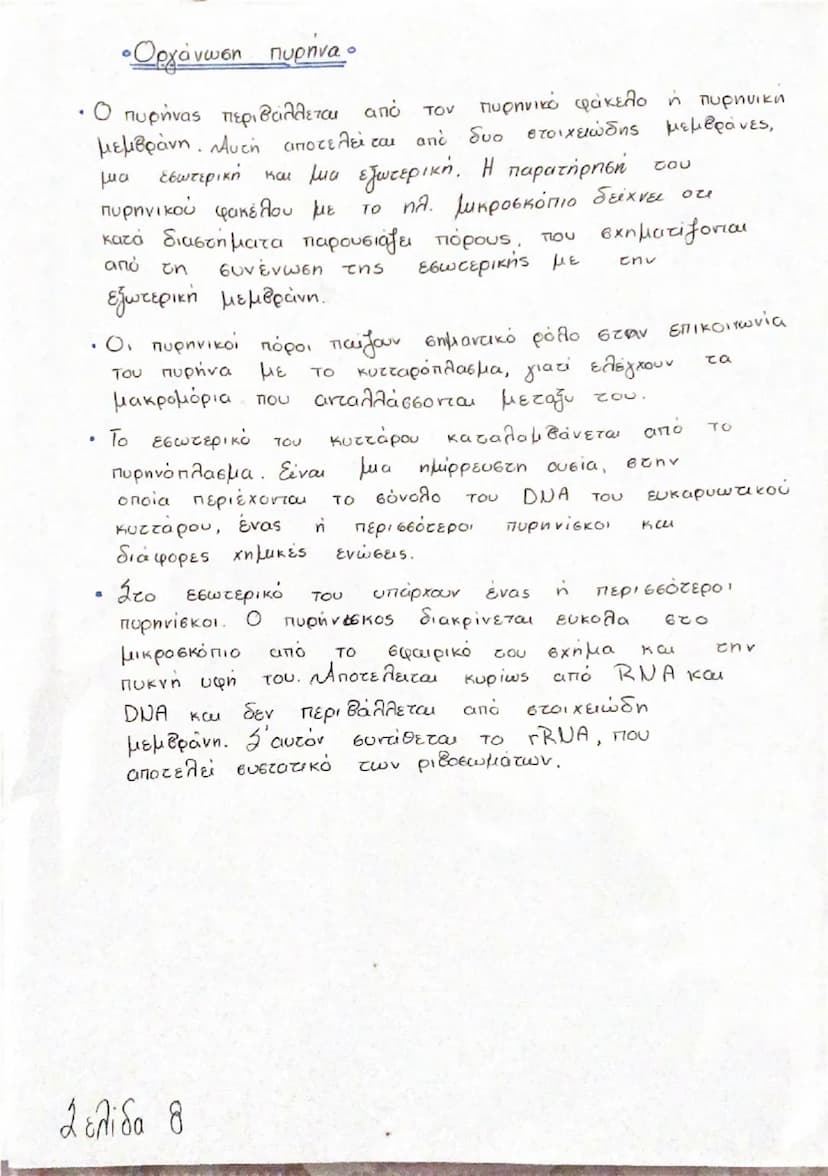 •Οργάνωση πυρήνα•
• Ο πυρήνας περιβάλλεται από τον πυρηνικό φάκελο ή πυρηνική
μεμβράνη. Αυτή αποτελείται από δυο στοιχειώδης μεμβράνες,
μια εσωτερική και μια εξωτερική. Η παρατήρησή του
πυρηνικού φακέλου με το ηλ. μικροσκόπιο δείχνει οτι
κατά διαστήματα παρουσιάζει πόρους, που σχηματίζονται
από τη συνένωση της εσωτερικής με την
εξωτερική μεμβράνη.
• Οι πυρηνικοί πόροι παίζουν σημαντικό ρόλο στην επικοινωνία
του πυρήνα με το κυτταρόπλασμα, γιατί ελέγχουν τα
μακρομόρια που ανταλλάσσονται μεταξύ του.
• Το εσωτερικό του κυττάρου καταλαμβάνεται από το
πυρηνόπλασμα. Είναι μια ημίρρευστη ουσία, στην
οποία περιέχονται το σύνολο του DNA του ευκαρυωτικού
κυττάρου, ένας ή περισσότεροι πυρηνίσκοι και
διάφορες χημικές ενώσεις.
• Στο εσωτερικό του υπάρχουν ένας ή περισσότεροι
πυρηνίσκοι. Ο πυρήνισκος διακρίνεται ευκολα στο
μικροσκόπιο από το σφαιρικό του σχήμα και την
πυκνή υφή του. Αποτελειται κυρίως από RNA και
DNA και δεν περιβάλλεται από στοιχειώδη
μεμβράνη. Σ'αυτόν συντίθεται το rRNA, που
αποτελεί συστατικό των ριβοσωμάτων.
Σελίδα 8